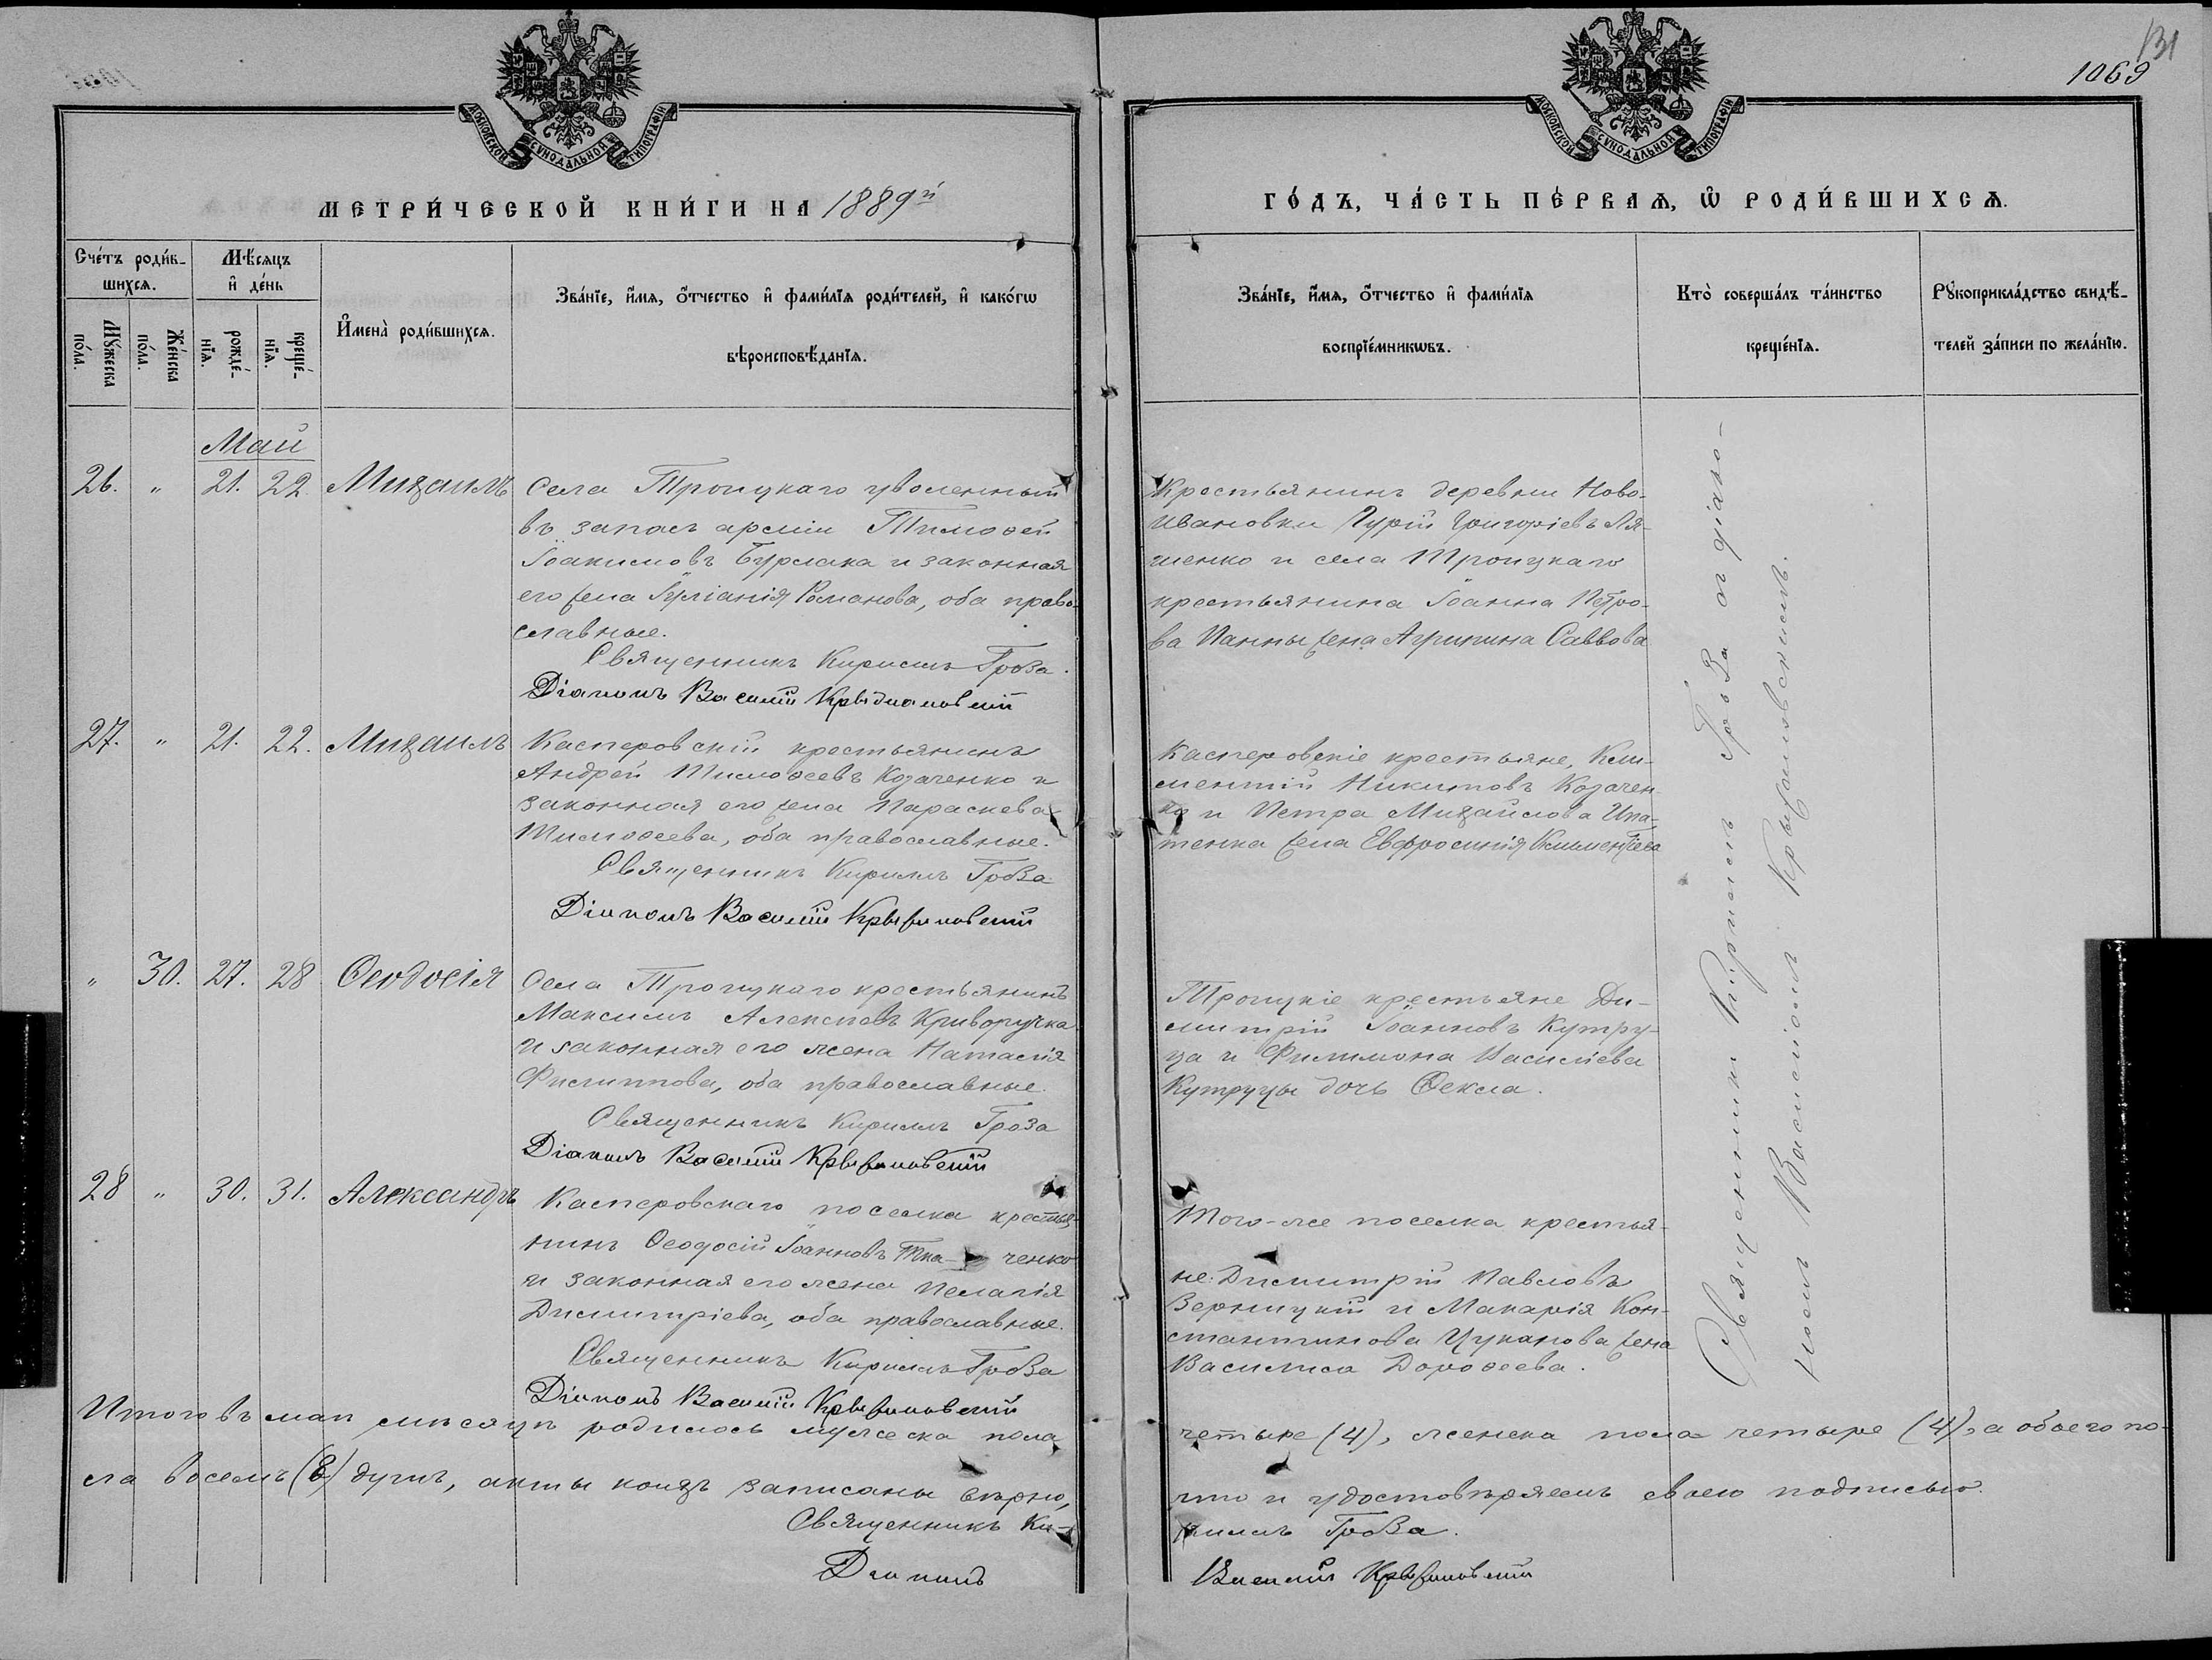 131
1069
МОСКОВСКОЙ СѴНОДАЛЬНОЙ ТИПОГРАФІИ
МОСКОВСКОЙ СѴНОДАЛЬНОЙ ТИПОГРАФІИ
МЕТРИ́ЧЕСКОЙ КНИ́ГИ НА 1889й
ГО́ДЪ, ЧА́СТЬ ПЕ́РВАѦ, Ѡ҆ РОДИ́ВШИХСѦ.
Сче́тъ роди́в-
шихсѧ.
Мꙋ́жеска по́ла.
Же́нска по́ла.
Мѣ́сѧцъ
и҆ де́нь
рожде́-нїѧ.
креще́-нїѧ.
И҆мена̀ роди́вшихсѧ.
Зва́нїе, и҆́мѧ, ѻ҆́тчество и҆ фами́лїѧ роди́телей, и҆ како́гѡ
вѣроисповѣ́данїѧ.
Зва́нїе, и҆́мѧ, ѻ҆́тчество и҆ фами́лїѧ
воспрїе́мникѡвъ.
Кто̀ соверша́лъ та́инство
креще́нїѧ.
Рꙋкоприкла́дство свидѣ́-
телей за́писи по жела́нїю.
Май
26. " 21. 22. Михаилъ
Села Троицкаго уволенный
въ запасъ арміи Тимоѳей
Іоакимовъ Бурлака и законная
его жена Іуліанія Романова, оба право-
славные.
Священникъ Кириллъ Гроза.
Діаконъ Василій Крыжановскій
Крестьянинъ деревни Ново-
Ивановки Гурій Григоріевъ Ля-
шенко и села Троицкаго
крестьянина Іоанна Петро-
ва Панны жена Агрипина Саввова
27. " 21. 22. Михаилъ
Касперовскій крестьянинъ
Андрей Тимоѳеевъ Козаченко и
законная его жена Параскева
Тимоѳеева, оба православные.
Священникъ Кириллъ Гроза
Діаконъ Василій Крыжановскій
Касперовскіе крестьяне, Кли-
ментій Никитовъ Козачен-
ко и Петра Михайлова Ипа-
тенка жена Евфросинія Климентіева
" 30. 27. 28 Ѳеодосія
Села Троицкаго крестьянинъ
Максимъ Алексіевъ Криворучка
и законная его жена Наталія
Филиппова, оба православные.
Священникъ Кириллъ Гроза
Діаконъ Василій Крыжановскій
Троицкіе крестьяне Ди-
митрій Іоанновъ Кутру-
ца и Филимона Васильева
Кутруцы дочь Ѳекла.
28 " 30. 31. Александръ
Касперовскаго поселка крестья-
нинъ Ѳеодосій Іоанновъ Тка- ченко
и законная его жена Пелагія
Димитріева, оба православные.
Священникъ Кириллъ Гроза
Діаконъ Василій Крыжановскій
Того-же поселка крестья-
не: Димитрій Павловъ
Верницкій и Макарія Кон-
стантинова Цуканова жена
Василиса Дороѳеева.
Священникъ Кириллъ Гроза съ діако-
номъ Василіемъ Крыжановскимъ.
Итого въ маѣ мѣсяцѣ родилось мужеска пола
четыре (4), женска пола четыре (4), а обоего по-
ла восемь (8) душъ, акты коихъ записаны вѣрно,
что и удостовѣряемъ своею подписью.
Священникъ Ки-
риллъ Гроза.
Діаконъ
Василій Крыжановскій